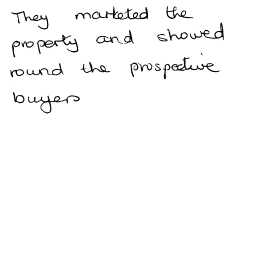 They marketed the
property and showed
round the prospective
buyers